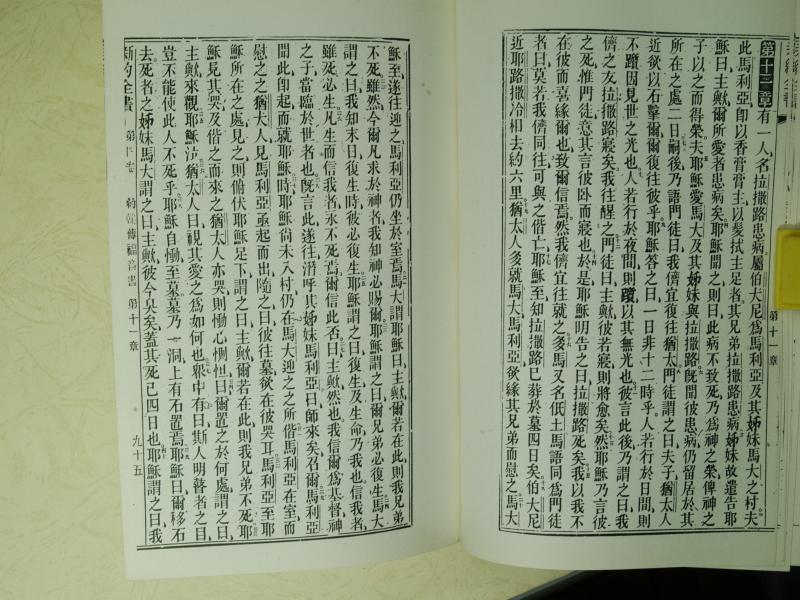 第十一章
第十一章有一人名拉撒路患病屬伯大尼爲馬利亞及其姊妹馬大之村夫
此馬利亞卽以香膏膏主以髮拭主足者其兄弟拉撒路患病姊妹故遣告耶
穌曰主歟爾所愛者患病矣耶穌聞之則曰此病不致死乃爲神之榮俾神之
子以之而得榮夫耶穌愛馬大及其姊妹與拉撒路旣聞彼患病仍留居於其
所在之處二日嗣後乃語門徒曰我儕宜復往猶太門徒謂之曰夫子猶太人
近欲以石擊爾爾復往彼乎耶穌答之曰一日非十二時乎人若行於日間則
不躓因見世之光也人若行於夜間則躓以其無光也彼言此後乃謂之曰我
儕之友拉撒路寢矣我往醒之門徒曰主歟彼若寢則將愈矣然耶穌乃言彼
之死惟門徒意其言彼臥而寢也於是耶穌明告之曰拉撒路死矣我以我不
在彼而喜緣爾也致爾信焉然我儕宜往就之多馬又名低土馬語同爲門徒
者曰莫若我儕同往可與之偕亡耶穌至知拉撒路已葬於墓四日矣伯大尼
近耶路撒冷相去約六里猶太人多就馬大馬利亞欲緣其兄弟而慰之馬大
穌至遂往迎之馬利亞仍坐於室焉馬大謂耶穌曰主歟爾若在此則我兄弟
不死雖然今爾凡求於神者我知神必賜爾耶穌謂之曰爾兄弟必復生馬大
謂之曰我知末日復生時彼必復生耶穌謂之曰復生及生命乃我也信我者
雖死必生凡生而信我者永不死焉爾信此否曰主歟然也我信爾爲基督神
之子當臨於世者也旣言此遂往潛呼其姊妹馬利亞曰師來矣召爾馬利亞
聞此卽起而就耶穌時耶穌尚未入村仍在馬大迎之之所偕馬利亞在室而
慰之之猶太人見馬利亞亟起而出隨之曰彼往墓欲在彼哭耳馬利亞至耶
穌所在之處見之則俯伏耶穌足下謂之曰主歟爾若在此則我兄弟不死耶
穌見其哭及偕之而來之猶太人亦哭則慟心惻怛曰爾置之於何處謂之曰
主歟來觀耶穌泣猶太人曰視其愛之爲如何也衆中有曰斯人明瞽者之目
豈不能使此人不死乎耶穌自慟至墓墓乃一洞上有石置焉耶穌曰爾移石
去死者之姊妹馬大謂之曰主歟彼今臭矣蓋其死已四日也耶穌謂之曰我
新約全書 約翰傳福音書 第十一章 九十五